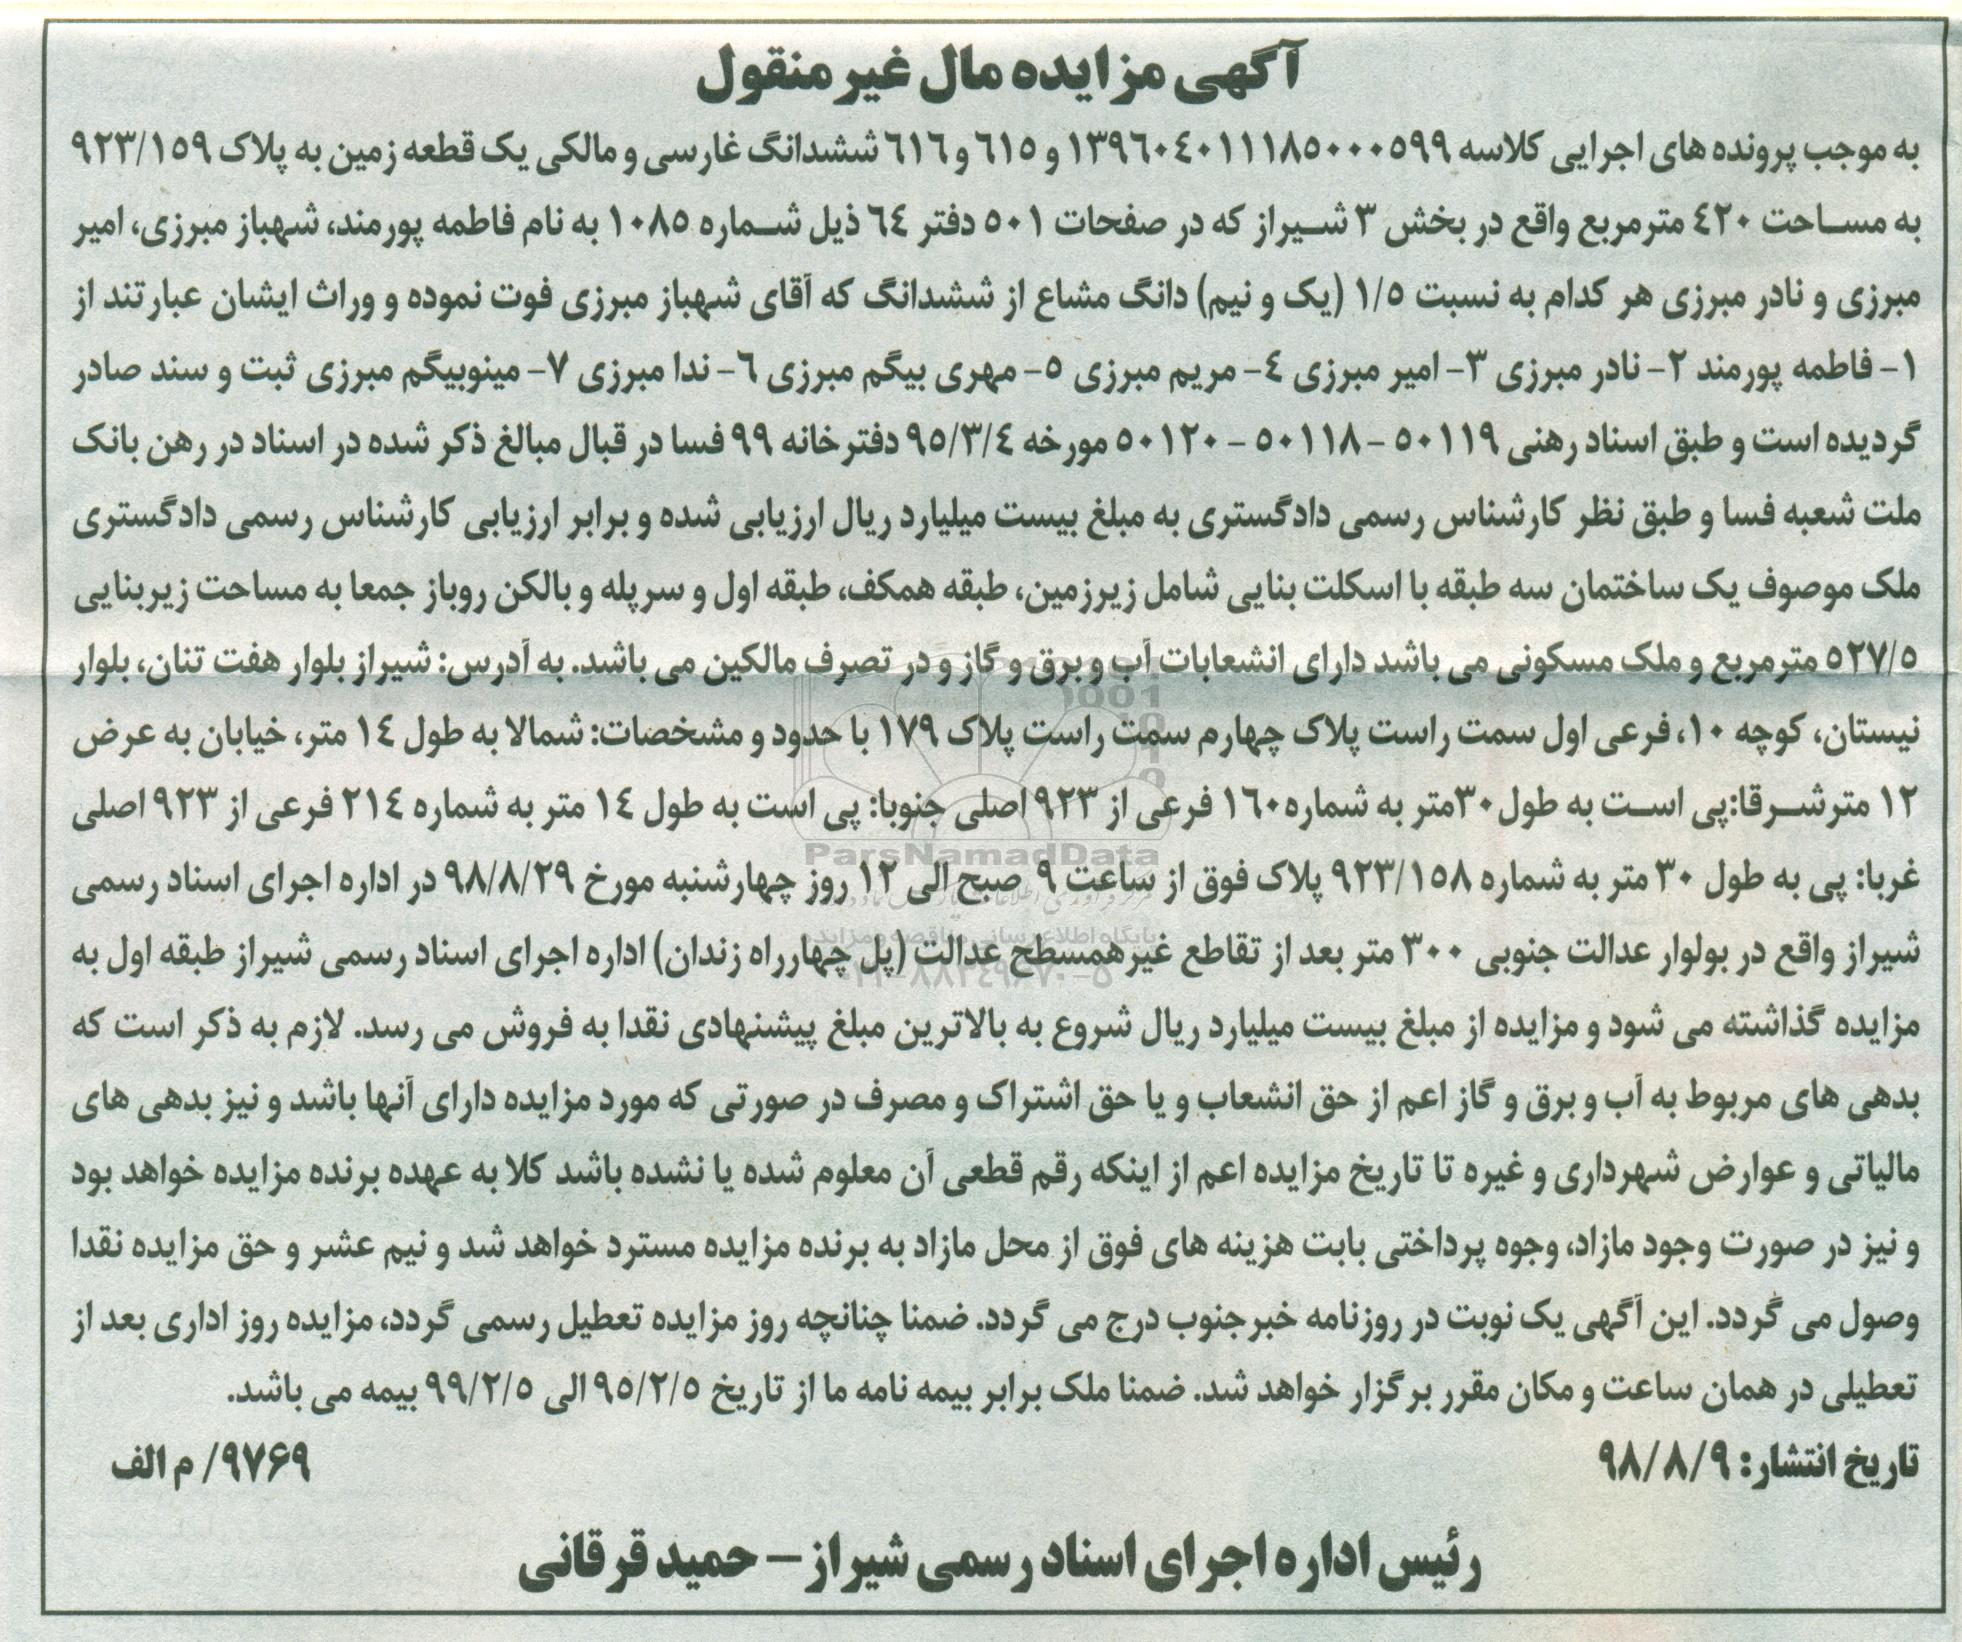 آگهی مزایده مال غیر منقول
به موجب پرونده های اجرایی کلاسه ۱۳۹٦۰٤۰۱۱۱۸۵۰۰۰۵۹۹ و ٦۱۵ و ٦۱٦ ششدانگ غارسی و مالکی یک قطعه زمین به پلاک ۹۲۳/۱۵۹
به مساحت ٤۲۰ مترمربع واقع در بخش ۳ شیراز که در صفحات ۵۰۱ دفتر ٦٤ ذیل شماره ۱۰۸۵ به نام فاطمه پورمند، شهباز مبرزی، امیر
مبرزی و نادر مبرزی هر کدام به نسبت ۱/۵ (یک و نیم) دانگ مشاع از ششدانگ که آقای شهباز مبرزی فوت نموده و وراث ایشان عبارتند از
۱- فاطمه پورمند ۲- نادر مبرزی ۳- امیر مبرزی ٤- مریم مبرزی ۵- مهری بیگم مبرزی ٦- ندا مبرزی ۷- مینوبیگم مبرزی ثبت و سند صادر
گردیده است و طبق اسناد رهنی ۵۰۱۱۹ - ۵۰۱۱۸ - ۵۰۱۲۰ مورخه ۹۵/۳/٤ دفترخانه ۹۹ فسا در قبال مبالغ ذکر شده در اسناد در رهن بانک
ملت شعبه فسا و طبق نظر کارشناس رسمی دادگستری به مبلغ بیست میلیارد ریال ارزیابی شده و برابر ارزیابی کارشناس رسمی دادگستری
ملک موصوف یک ساختمان سه طبقه با اسکلت بنایی شامل زیرزمین، طبقه همکف، طبقه اول و سرپله و بالکن روباز جمعا به مساحت زیربنایی
۵۲۷/۵ مترمربع و ملک مسکونی می باشد دارای انشعابات آب و برق و گاز و در تصرف مالکین می باشد. به آدرس: شیراز بلوار هفت تنان، بلوار
نیستان، کوچه ۱۰، فرعی اول سمت راست پلاک چهارم سمت راست پلاک ۱۷۹ با حدود و مشخصات: شمالا به طول ۱٤ متر، خیابان به عرض
۱۲ مترشرقا:پی است به طول ۳۰متر به شماره۱٦۰ فرعی از ۹۲۳ اصلی جنوبا: پی است به طول ۱٤ متر به شماره ۲۱٤ فرعی از ۹۲۳ اصلی
غربا: پی به طول ۳۰ متر به شماره ۹۲۳/۱۵۸ پلاک فوق از ساعت ۹ صبح الی ۱۲ روز چهارشنبه مورخ ۹۸/۸/۲۹ در اداره اجرای اسناد رسمی
شیراز واقع در بولوار عدالت جنوبی ۳۰۰ متر بعد از تقاطع غیرهمسطح عدالت (پل چهارراه زندان) اداره اجرای اسناد رسمی شیراز طبقه اول به
مزایده گذاشته می شود و مزایده از مبلغ بیست میلیارد ریال شروع به بالاترین مبلغ پیشنهادی نقدا به فروش می رسد. لازم به ذکر است که
بدهی های مربوط به آب و برق و گاز اعم از حق انشعاب و یا حق اشتراک و مصرف در صورتی که مورد مزایده دارای آنها باشد و نیز بدهی های
مالیاتی و عوارض شهرداری و غیره تا تاریخ مزایده اعم از اینکه رقم قطعی آن معلوم شده یا نشده باشد کلا به عهده برنده مزایده خواهد بود
و نیز در صورت وجود مازاد، وجوه پرداختی بابت هزینه های فوق از محل مازاد به برنده مزایده مسترد خواهد شد و نیم عشر و حق مزایده نقدا
وصول می گردد. این آگهی یک نوبت در روزنامه خبرجنوب درج می گردد. ضمنا چنانچه روز مزایده تعطیل رسمی گردد، مزایده روز اداری بعد از
تعطیلی در همان ساعت و مکان مقرر برگزار خواهد شد. ضمنا ملک برابر بیمه نامه ما از تاریخ ۹۵/۲/۵ الی ۹۹/۲/۵ بیمه می باشد.
تاریخ انتشار: ۹۸/۸/۹ ۹۷۶۹/ م الف
رئیس اداره اجرای اسناد رسمی شیراز – حمید قرقانی
ParsNamadData
پایگاه اطلاع رسانی مناقصه و مزایده